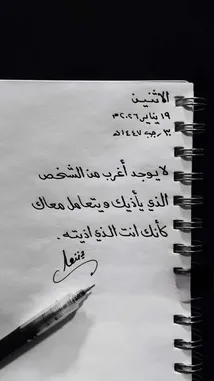 الاثنين
١٩ يناير ٢٠٢٦م
٣٠ رجب ١٤٤٧هـ
لا يوجد أغرب من الشخص
الذي يأذيك ويتعامل معاك
كأنك انت الذي اذيته.